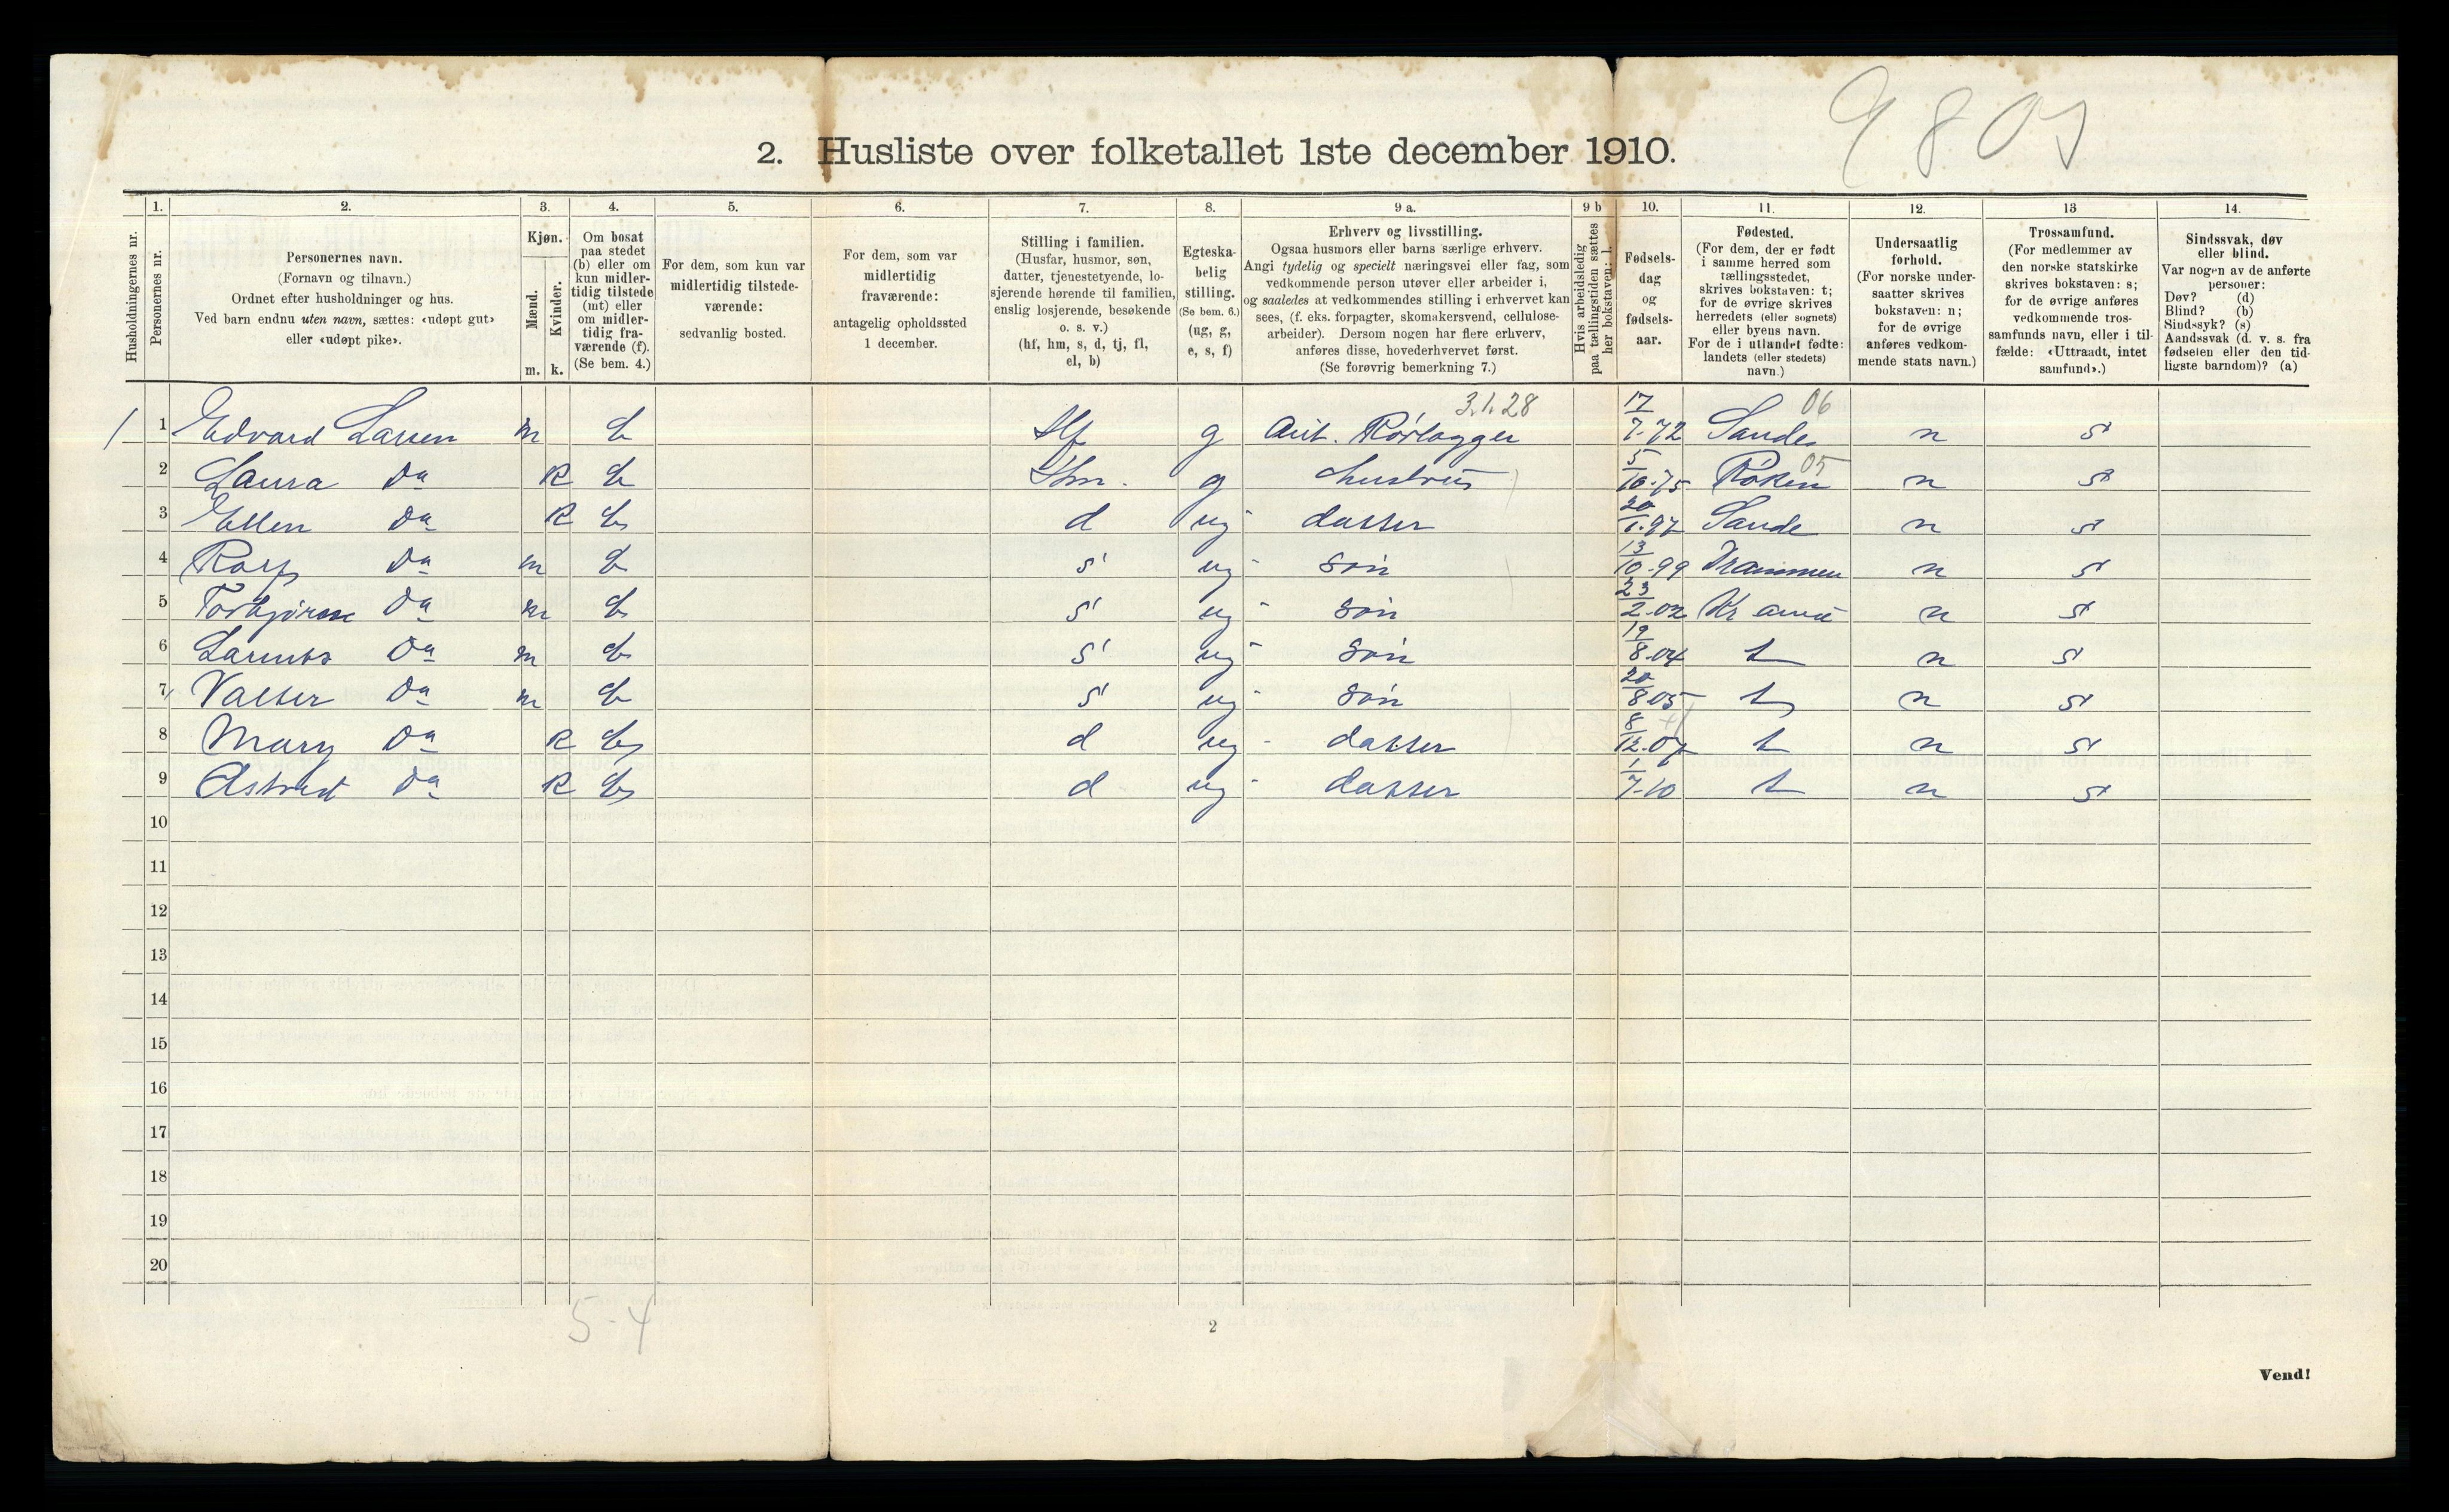 9807
2. Husliste over folketallet 1ste december 1910.
Husholdningernes nr.
1. Personernes nr.
2. Personernes navn.
(Fornavn og tilnavn.)
Ordnet efter husholdninger og hus.
Ved barn endnu uten navn, sættes: «udøpt gut»
eller «udøpt pike».
3. Kjøn.
Mænd. m.
Kvinder. k.
4. Om bosat
paa stedet
(b) eller om
kun midler-
tidig tilstede
(mt) eller
om midler-
tidig fra-
værende (f).
(Se bem. 4.)
5. For dem, som kun var
midlertidig tilstede-
værende:
sedvanlig bosted.
6. For dem, som var
midlertidig
fraværende:
antagelig opholdssted
1 december.
7. Stilling i familien.
(Husfar, husmor, søn,
datter, tjenestetyende, lo-
sjerende hørende til familien,
enslig losjerende, besøkende
o. s. v.)
(hf, hm, s, d, tj, fl,
el, b)
8. Egteska-
belig
stilling.
(Se bem. 6.)
(ug, g,
e, s, f)
9 a. Erhverv og livsstilling.
Ogsaa husmors eller barns særlige erhverv.
Angi tydelig og specielt næringsvei eller fag, som
vedkommende person utøver eller arbeider i,
og saaledes at vedkommendes stilling i erhvervet kan
sees, (f. eks. forpagter, skomakersvend, cellulose-
arbeider). Dersom nogen har flere erhverv,
anføres disse, hovederhvervet først.
(Se forøvrig bemerkning 7.)
9 b Hvis arbeidsledig
paa tællingstiden sættes
her bokstaven: l.
10. Fødsels-
dag
og
fødsels-
aar.
11. Fødested.
(For dem, der er født
i samme herred som
tællingsstedet,
skrives bokstaven: t;
for de øvrige skrives
herredets (eller sognets)
eller byens navn.
For de i utlandet fødte:
landets (eller stedets)
navn.)
12. Undersaatlig
forhold.
(For norske under-
saatter skrives
bokstaven: n;
for de øvrige
anføres vedkom-
mende stats navn.)
13 Trossamfund.
(For medlemmer av
den norske statskirke
skrives bokstaven: s;
for de øvrige anføres
vedkommende tros-
samfunds navn, eller i til-
fælde: «Uttraadt, intet
samfund».)
14. Sindssvak, døv
eller blind.
Var nogen av de anførte
personer:
Døv? (d)
Blind? (b)
Sindssyk? (s)
Aandssvak (d. v. s. fra
fødselen eller den tid-
ligste barndom)? (a)
3.1.28 06
1 1 Edvard Larsen m b Hf g Arb. Rørlægger 17/7-72 Sande n s
05
2 Laura Da k b Hm. g hustru 5/10-75 Røken n s
3 Ellen Da k b d ug datter 20/1-97 Sande n s
4 Rolf Da m b s ug søn 13/10-99 Drammen n s
5 Torbjørn Da m b s ug søn 23/2-02 Kr ania n s
6 Da m b s ug søn 19/8-04 t n s
7 Valter Da m b s ug søn 20/8-05 t n s
8 Mary Da k b d ug datter 8/12-07 t n s
9 Astrid Da k b d ug datter 1/7-10 t n s
10
11
12
13
14
15
16
17
18
19
20
5-4
2
Vend!